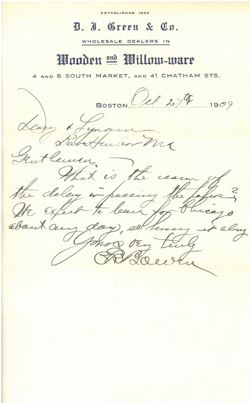 ESTABLISHED
D. J. Green & Co.
WHOLESALE DEALERS IN
Wooden and Willow-ware
4 AND 6 SOUTH MARKET, AND 41 CHATHAM STS.
BOSTON, Oct 1909
Deasy & Lynam
Bar Harbor Me
Gentlemen
What is the reason of
the delay in passing the papers?
We expect to leave for Chicago
about any day, so hurry it along
Yours very truly
Bowen